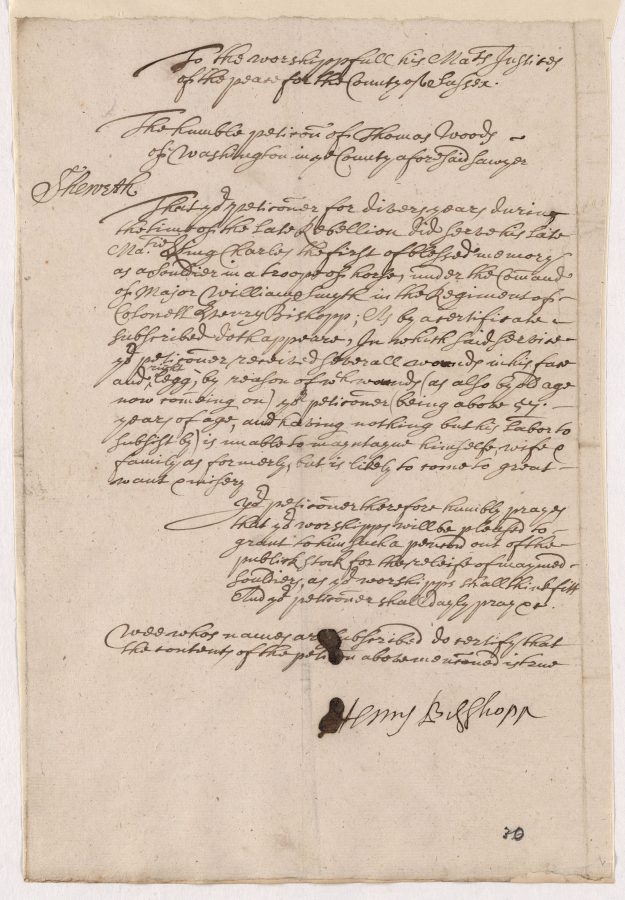 To the worshippfull his Ma:ts Justices
of the peace for the County of Sussex.
The humble peticon of Thomas Woods
of Washington in ye County aforesaid sawyer
Sheweth
That yor peticoner for divers years during
the time of the Late Rebellion did serve his Late
Ma:tie King Charles the first of blessed memory
as a Souldier in a troope of horse, under the Comand
of Major William Smyth in the Regiment of
Colonell Henry Bishopp; As by a certificate
subscribed doth appeare, In which said service
yor peticoner received severall wounds in his face
and right legg, by reason of wch wounds (as also by old age
now comeing on) yor peticoner (being above
years of age, and having nothing but his Labor to
subsist by) is unable to mayntayne himselfe, wife &
family as formerly, but is likely to come to great
want & misery
Yor peticoner therefore humbly prayes
that yor worshipps will be pleased to
grant to him such a pencon out of the
publick stock for the releife of maymed
Souldiers, as yor worshipps shall thinke fitt
And yor peticoner shall dayly pray &c.
Wee whos names are subscribed do certify that
the contents of the peticon above mencioned is true
Henry Bisshopp
30